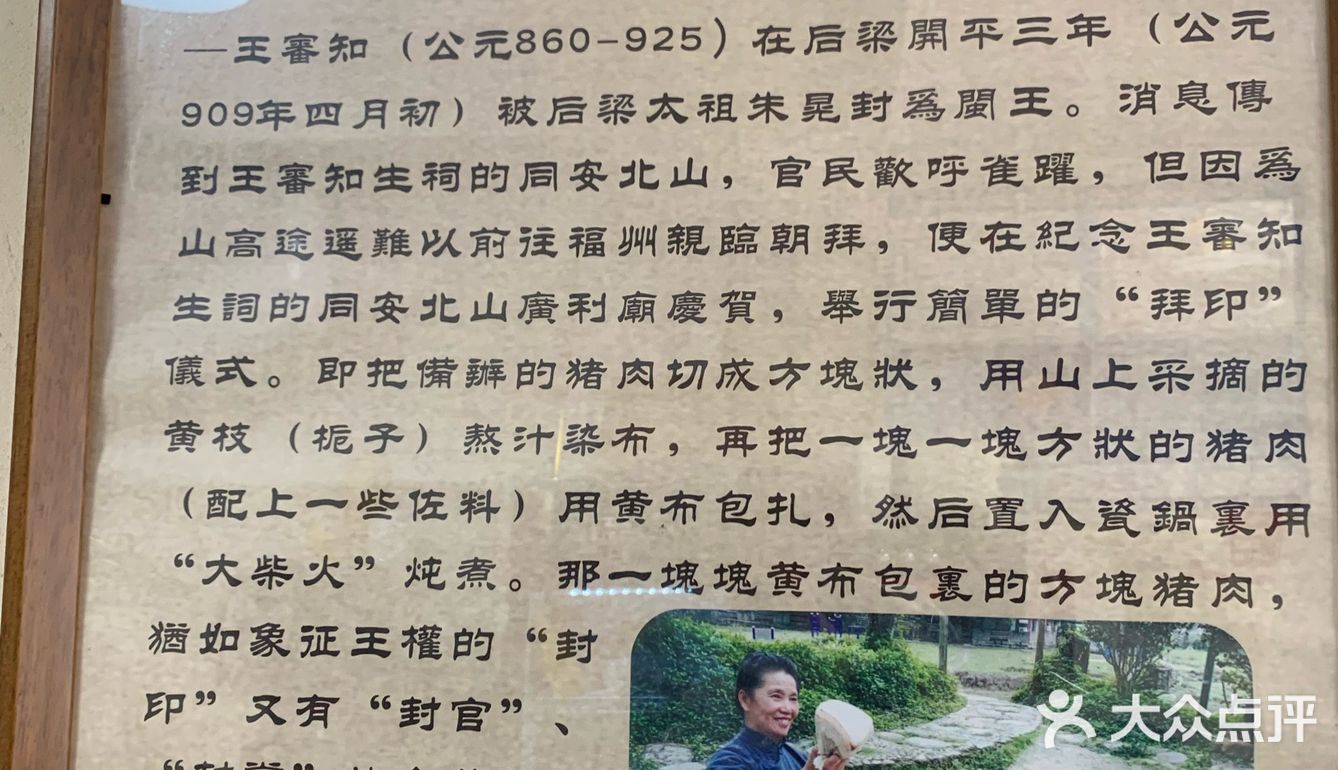 —王審知（公元860-925）在后梁開平三年（公元
909年四月初）被后梁太祖朱晃封爲閩王。消息傳
到王審知生祠的同安北山，官民歡呼雀躍，但因爲
山高途遥難以前往福州親臨朝拜，便在紀念王審知
生詞的同安北山廣利廟慶賀，舉行簡單的“拜印”
儀式。即把備辦的猪肉切成方塊狀，用山上采摘的
黄枝（栀子）熬汁染布，再把一塊一塊方狀的猪肉
（配上一些佐料）用黄布包扎，然后置入瓷鍋裏用
“大柴火”炖煮。那一塊塊黄布包裹的方塊猪肉，
猶如象征王權的“封
印”又有“封官”、
大众点评